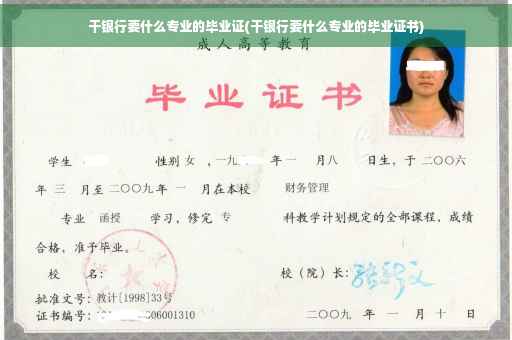 干银行要什么专业的毕业证(干银行要什么专业的毕业证书)
成人高等教育
毕业证书
学生 性别 女 ，一九 年一 月八 日生，于二〇〇六
年 三 月至二〇〇九年 一 月在本校 财务管理
专业 函授 学习，修完 专 科教学计划规定的全部课程，成绩
合格，准予毕业。
校 名： 校（院）长：
批准文号：教计[1998]33号
证书编号： 06001310 二〇〇九 年 一 月 十 日